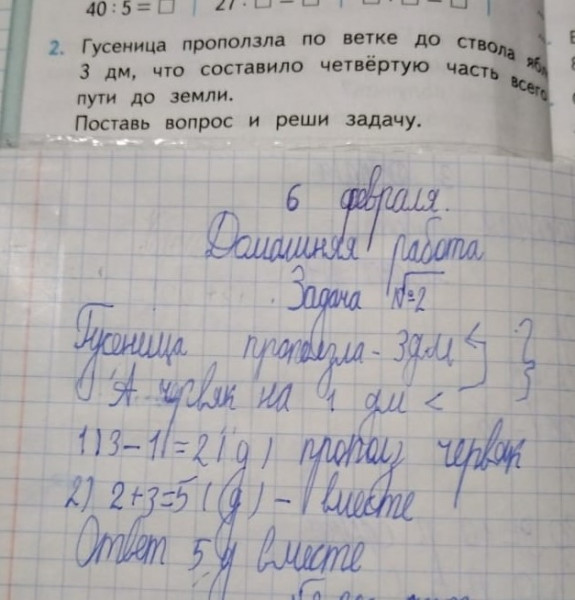 40 : 5 = □ 27 : □ = □
2. Гусеница проползла по ветке до ствола
3 дм, что составило четвёртую часть всего
пути до земли.
Поставь вопрос и реши задачу.
6 февраля.
Домашняя работа
Задача №2
Гусеница проползла - 3 дм < ?
А червяк на 1 дм <
1) 3 - 1 = 2 (д) прополз червяк
2) 2 + 3 = 5 (д) - вместе
Ответ 5 д вместе